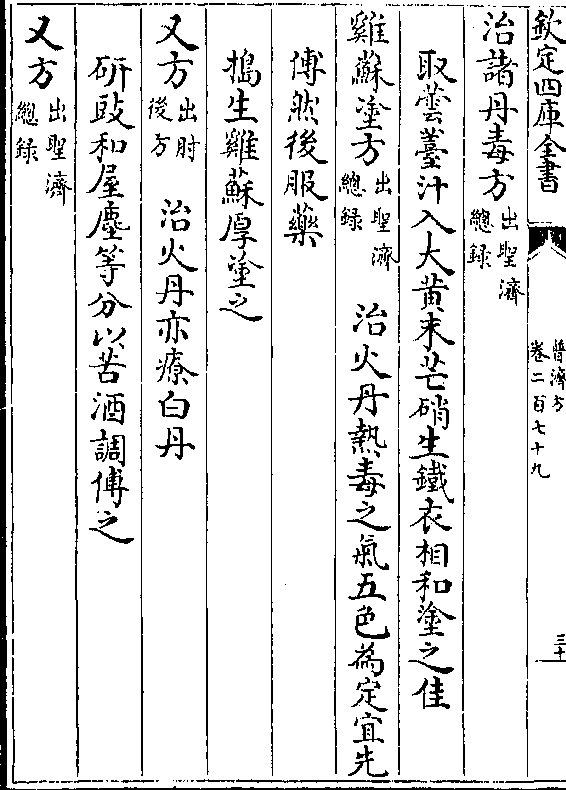 欽定四庫全書
普濟方
卷二百七十九
三十
治諸丹毒方出聖濟總録
取蕓薹汁入大黄末芒硝生鐵衣相和塗之佳
雞蘇塗方出聖濟總録 治火丹熱毒之氣五色為定宜先
傅然後服藥
搗生雞蘇厚塗之
又方出肘後方 治火丹亦療白丹
研豉和屋塵等分以苦酒調傅之
又方出聖濟總録